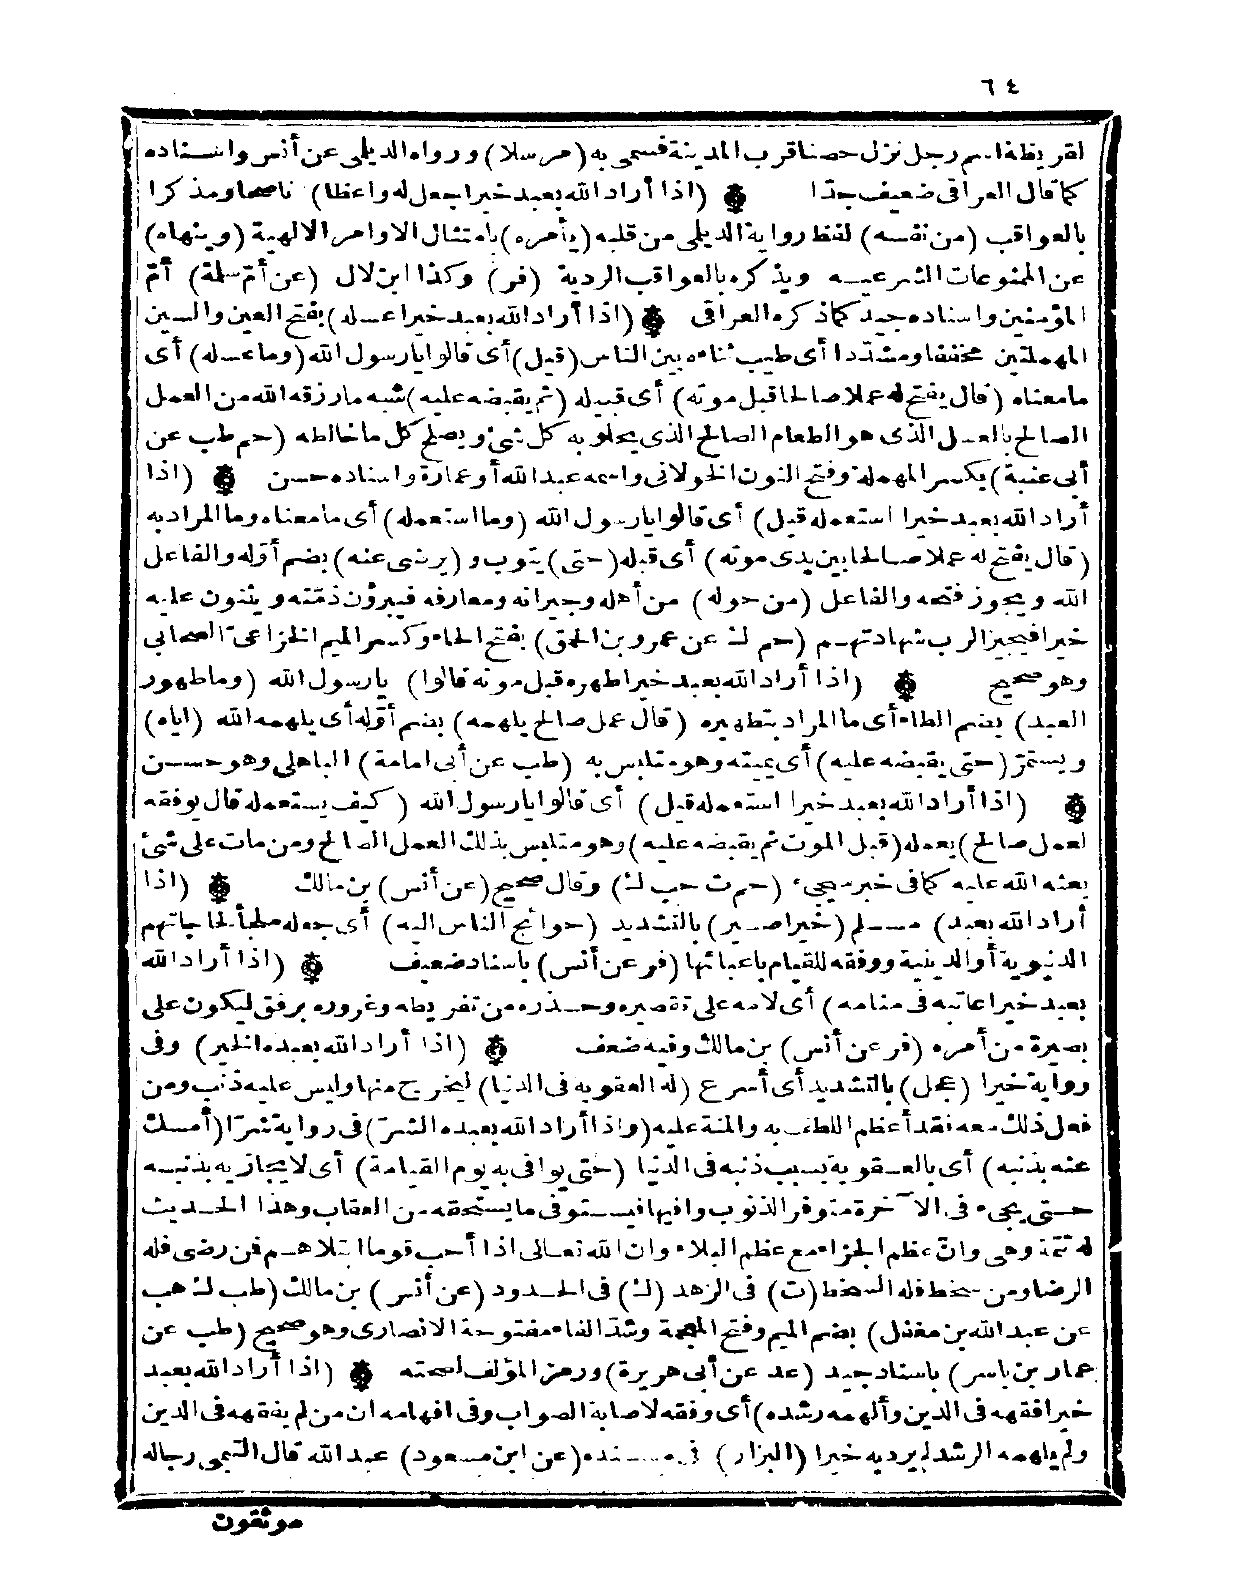 ٦٤
لقريظة اسم رجل نزل حصنا قرب المدينة فسمى به (مرسلا) ورواه الديلى عن أنس واسناده
كما قال العراقى ضعيف جدّا ۞ (اذا أراد الله بعبد خيرا جعل له واعظا) ناصحا ومذكرا
بالعواقب (من نفسه) لفظ رواية الديلى من قلبه (يأمره) بامتثال الاوامر الالهية (وينهاه)
عن الممنوعات الشرعيه ويذكره بالعواقب الردية (فر) وكذا ابن لال (عن أمّ سلمة) أمّ
المؤمنين واسناده جيد كما ذكره العراقى ۞ (اذا أراد الله بعبد خيرا عسله) بفتح العين والسين
المهملتين مخففا ومشدّدا أى طيب ثناءه بين الناس (قيل) أى قالوا يا رسول الله (وما عسله) أى
ما معناه (قال يفتح له عملا صالحا قبل موته) أى قبيله (ثم يقبضه عليه) شبه ما رزقه الله من العمل
الصالح بالعسل الذى هو الطعام الصالح الذى يحلو به كل شئ ويصلح كل ما خالطه (حم طب عن
أبى عنبة) بكسر المهملة وفتح النون الخولانى واسمه عبد الله أو عمارة واسناده حسن ۞ (اذا
أراد الله بعبد خيرا استعمله قيل) أى قالوا يا رسول الله (وما استعمله) أى ما معناه وما المراد به
(قال يفتح له عملا صالحا بين يدى موته) أى قبله (حتى) يتوب و (يرضى عنه) بضم أوّله والفاعل
الله ويجوز فتحه والفاعل (من حوله) من أهله وجيرانه ومعارفه فيبرؤن ذمّته ويثنون عليه
خيرا فيجيز الرب شهادتهم (حم ك عن عمرو بن الحمق) بفتح الحاء وكسر الميم الخزاعىّ الصحابى
وهو صحيح ۞ (اذا أراد الله بعبد خيرا طهره قبل موته قالوا) يا رسول الله (وما طهور
العبد) بضم الطاء أى ما المراد بتطهيره (قال عمل صالح يلهمه) بضم أوّله أى يلهمه الله (اياه)
ويستمرّ (حتى يقبضه عليه) أى يميته وهو متلبس به (طب عن أبى امامة) الباهلى وهو حسن
۞ (اذا أراد الله بعبد خيرا استعمله قيل) أى قالوا يا رسول الله (كيف يستعمله قال يوفقه
لعمل صالح) يعمله (قبل الموت ثم يقبضه عليه) وهو متلبس بذلك العمل الصالح ومن مات على شئ
بعثه الله عليه كما فى خبر سيجىء (حم ت حب ك) وقال صحيح (عن أنس) بن مالك ۞ (اذا
أراد الله بعبد) مسلم (خيرا صير) بالتشديد (حوائج الناس اليه) أى جعله ملجأ لحاجاتهم
الدنيوية أو الدينية ووفقه للقيام باعبائها (فر عن أنس) باسناد ضعيف ۞ (اذا أراد الله
بعبد خيرا عاتبه فى منامه) أى لامه على تقصيره وحذره من تفريطه وغروره برفق ليكون على
بصيرة من أمره (فر عن أنس) بن مالك وفيه ضعف ۞ (اذا أراد الله بعبده الخير) وفى
رواية خيرا (عجل) بالتشديد أى أسرع (له العقوبه فى الدنيا) ليخرج منها وليس عليه ذنب ومن
فعل ذلك معه فقد أعظم اللطف به والمنة عليه (واذا أراد الله بعبده الشرّ) فى رواية شرّا (أمسك
عنه بذنبه) أى بالعقوبة بسبب ذنبه فى الدنيا (حتى يوافى به يوم القيامة) أى لا يجازيه بذنبه
حتى يجىء فى الآخرة متوفر الذنوب وافيها فيستوفى ما يستحقه من العقاب وهذا الحديث
له تتمّة وهى وانّ عظم الجزاء مع عظم البلاء وان الله تعالى اذا أحب قوما ابتلاهم فمن رضى فله
الرضا ومن سخط فله السخط (ت) فى الزهد (ك) فى الحدود (عن أنس) بن مالك (طب ك هب
عن عبد الله بن مغفل) بضم الميم وفتح المعجمة وشدّ الفاء مفتوحة الانصارى وهو صحيح (طب عن
عمار بن ياسر) باسناد جيد (عد عن أبى هريرة) ورمز المؤلف لصحته ۞ (اذا أراد الله بعبد
خيرا فقهه فى الدين وألهمه رشده) أى وفقه لاصابة الصواب وفى افهامه ان من لم يفقهه فى الدين
ولم يلهمه الرشد لم يرد به خيرا (البزار) فى مسنده (عن ابن مسعود) عبد الله قال التيمى رجاله
موثقون